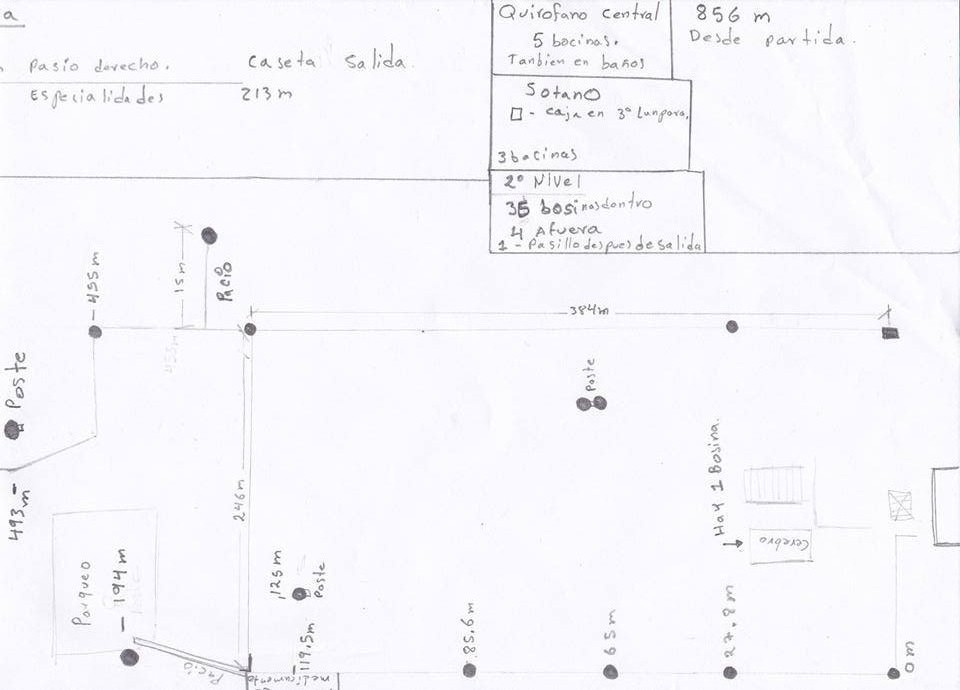 a
Pasio derecho.
Caseta Salida.
Especialidades
213m
Quirofano central
5 bocinas.
Tanbien en baños
856 m
Desde partida.
Sotano
- caja en 3° Lunpara.
3 bocinas
2° Nivel
35 bosinas dentro
4 Afuera
1 - Pasillo despues de salida
455m
15m
Pacio
384m
455m
Poste
Poste
493m
246m
Hay 1 Bosina.
Cerebro
Parqueo
194m
125m
Poste
Pacio
119.5m
medicamento
85.6m
65m
27.8m
0m